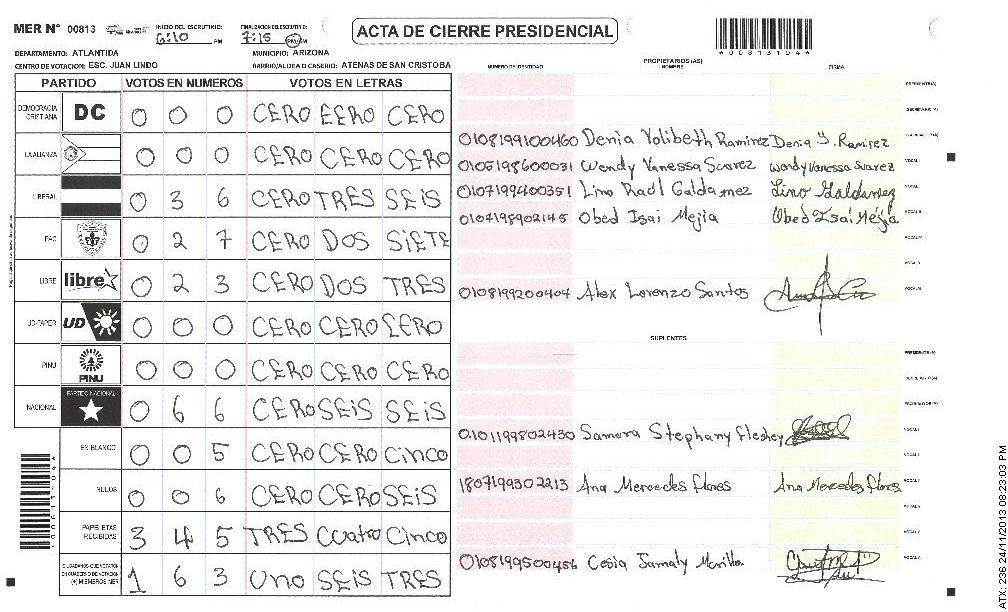 MER N° 00813 INICIO DEL ESCRUTINIO: 6:10 PM FINALIZACION DEL ESCRUTINIO: 7:15 PM/AM
ACTA DE CIERRE PRESIDENCIAL
*00813104*
DEPARTAMENTO: ATLANTIDA MUNICIPIO: ARIZONA
CENTRO DE VOTACION: ESC. JUAN LINDO BARRIO/ALDEA O CASERIO: ATENAS DE SAN CRISTOBA
PARTIDO VOTOS EN NUMEROS VOTOS EN LETRAS
DEMOCRACIA CRISTIANA DC 0 0 0 CERO CERO CERO
LA ALIANZA 0 0 0 CERO CERO CERO
LIBERAL 0 3 6 CERO TRES SEIS
PAC 0 2 7 CERO DOS SIETE
LIBRE libre 0 2 3 CERO DOS TRES
UD-FAPER UD 0 0 0 CERO CERO CERO
PINU PINU 0 0 0 CERO CERO CERO
NACIONAL PARTIDO NACIONAL 0 6 6 CERO SEIS SEIS
EN BLANCO 0 0 5 CERO CERO Cinco
NULOS 0 0 6 CERO CERO SEIS
PAPELETAS RECIBIDAS 3 4 5 TRES Cuatro Cinco
CIUDADANOS QUE VOTARON EN CUADERNO DE VOTACION (+) MIEMBROS MER 1 6 3 Uno SEIS TRES
PROPIETARIOS (AS)
NUMERO DE IDENTIDAD NOMBRE FIRMA
PRESIDENTE(A)
SECRETARIO(A)
0108199100460 Denia Yolibeth Ramirez Denia Y. Ramirez
0105198600031 Wendy Vanessa Suarez Wendy Vanessa Suarez VOCAL I
0107199400351 Lino Raul Galdamez Lino Galdamez
0107198902145 Obed Isai Mejia Obed Isai Mejia
0108199200404 Alex Lorenzo Santos
SUPLENTES
PRESIDENTE(A)
SECRETARIO(A)
0101199802430 Samora Stephany
1807199302213 Ana Mercedes Flores Ana Mercedes Flores
0108199500456 Cosia Samaly
ATX: 236 24/11/2013 08:23:03 PM